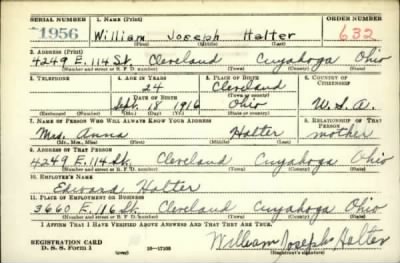 SERIAL NUMBER 1. NAME (Print) ORDER NUMBER
1956 William Joseph Halter 632
(First) (Middle) (Last)
2. ADDRESS (Print)
4249 E. 114 St. Cleveland Cuyahoga Ohio
(Number and street or R. F. D. number) (Town) (County) (State)
3. TELEPHONE 4. AGE IN YEARS 5. PLACE OF BIRTH 6. COUNTRY OF CITIZENSHIP
24 Cleveland
DATE OF BIRTH (Town or county)
Sept. 18 1916 Ohio U.S.A.
(Exchange) (No.) (Mo.) (Day) (Yr.) (State or country)
7. NAME OF PERSON WHO WILL ALWAYS KNOW YOUR ADDRESS 8. RELATIONSHIP OF THAT PERSON
Mrs. Anna Halter mother
(Mr., Mrs., Miss) (First) (Middle) (Last)
9. ADDRESS OF THAT PERSON
4249 E. 114 St. Cleveland Cuyahoga Ohio
(Number and street or R. F. D. number) (Town) (County) (State)
10. EMPLOYER'S NAME
Edward Halter
11. PLACE OF EMPLOYMENT OR BUSINESS
3660 E. 116 St. Cleveland Cuyahoga Ohio
(Number and street or R. F. D. number) (Town) (County) (State)
I AFFIRM THAT I HAVE VERIFIED ABOVE ANSWERS AND THAT THEY ARE TRUE.
REGISTRATION CARD
D. S. S. Form 1 (over) 16—17105 William Joseph Halter
(Registrant's signature)